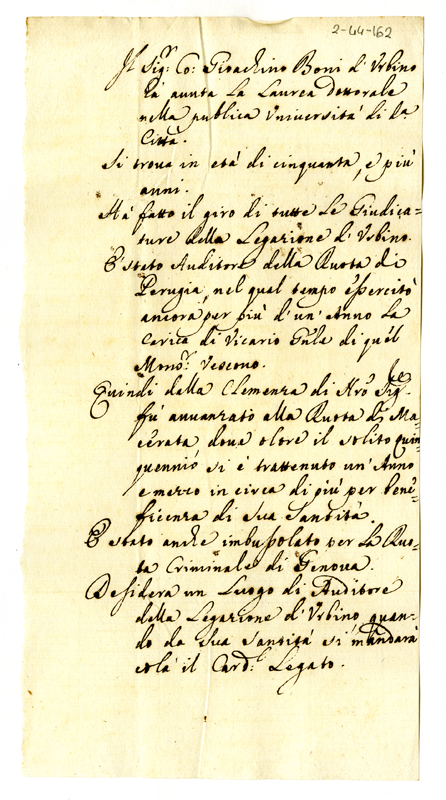 2-44-162
Il Sigr. Co: Gioachino Boni d'Urbino
hà avuta la Laurea dottorale
nella publica Università di da
Città.
Si trova in età di cinquanta, e più
anni.
Hà fatto il giro di tutte le Giudica=
ture della Legazione d'Urbino.
È stato Auditore della Ruota di
Perugia, nel qual tempo essercitò
ancora per più d'un'Anno la
Carica di Vicario Gnle di quel
Monsr. Vescovo.
Quindi dalla Clemenza di Nro Sige.
fù avvanzato alla Ruota di Ma=
cerata dove oltre il solito quin=
quennio si è trattenuto un'Anno
e mezzo in circa di più per bene=
ficenza di Sua Santità.
È stato anche imbussolato per la Ruo=
ta Criminale di Genova.
Desidera un Luogo di Auditore
della Legazione d'Urbino quan=
do da Sua Santità si mandarà
colà il Cardl: Legato.